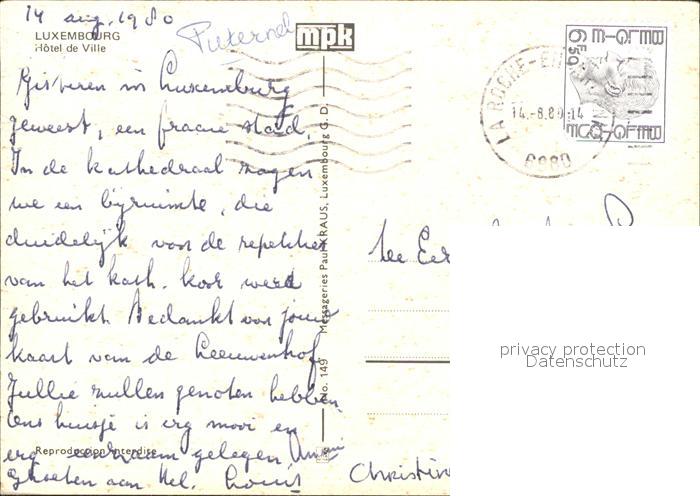 14 aug. 1980
LUXEMBOURG
Hôtel de Ville
mpk
BELGIE-BELGIQUE
6F50
LA ROCHE-EN-
14.-8.80-14
6980
Gisteren in Luxemburg
geweest, een fraaie stad.
In de kathedraal zagen
we een bijruimte, die
duidelijk voor de repetities
van het kath. koor werd
gebruikt. Bedankt voor jouw
kaart van de Leeuwenhof.
Jullie zullen genoten hebben.
Ons huisje is erg mooi en
erg eenzaam gelegen
Groeten aan Nel. Louis
Christin
Reproduction interdite
No. 149 Messageries Paul KRAUS, Luxembourg G. D.
privacy protection
Datenschutz